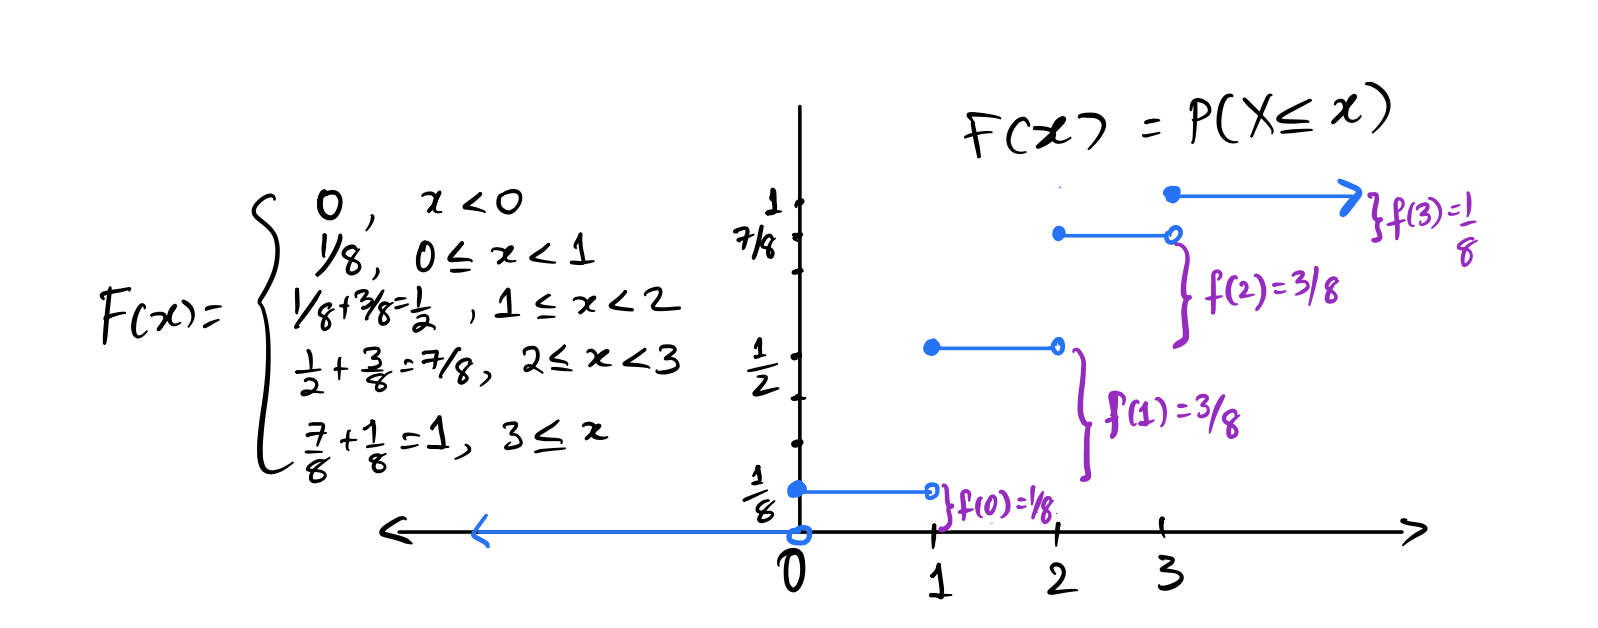 F(x) = P(X ≤ x)
F(x) =
0, x < 0
1/8, 0 ≤ x < 1
1/8 + 3/8 = 1/2, 1 ≤ x < 2
1/2 + 3/8 = 7/8, 2 ≤ x < 3
7/8 + 1/8 = 1, 3 ≤ x
1
7/8
1/2
1/8
f(3) = 1/8
f(2) = 3/8
f(1) = 3/8
f(0) = 1/8
0 1 2 3